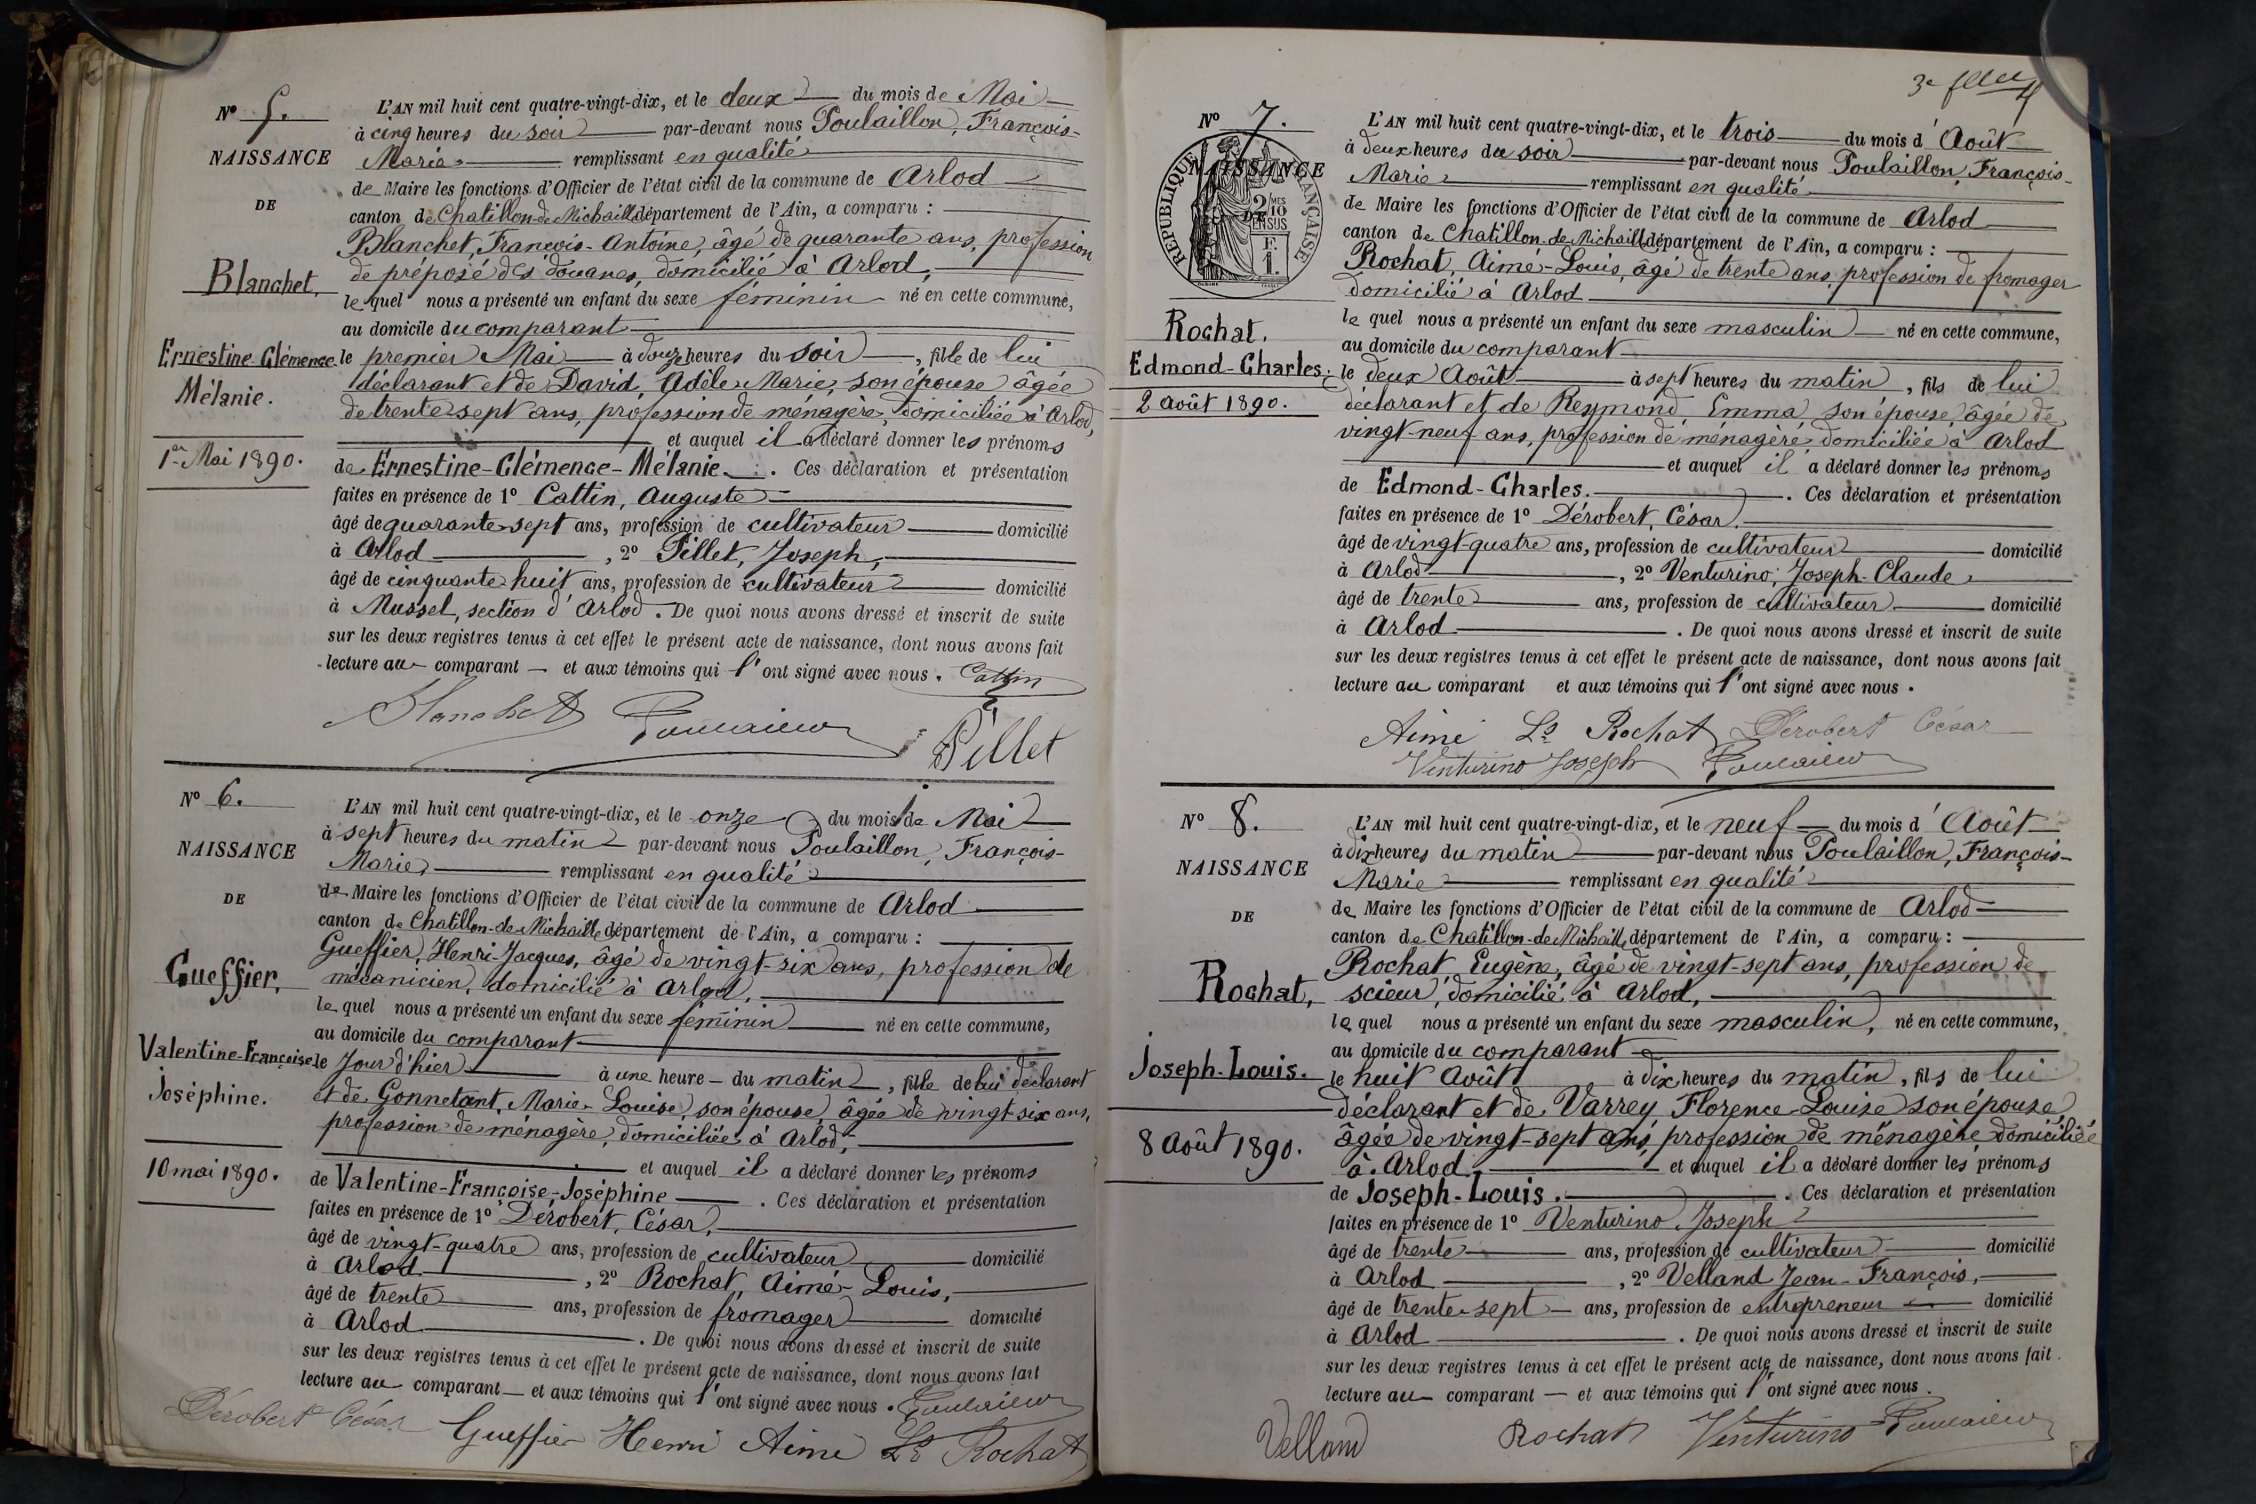 Nº 5.
NAISSANCE
DE
Blanchet,
Ernestine-Clémence
Mélanie.
1er Mai 1890.
L'AN mil huit cent quatre-vingt-dix, et le deux du mois de Mai
à cinq heures du soir par-devant nous Poulaillon, François-
Marie remplissant en qualité
de Maire les fonctions d'Officier de l'état civil de la commune de Arlod
canton de Chatillon-de-Michaille département de l'Ain, a comparu :
Blanchet, François-Antoine, âgé de quarante ans, profession
de préposé des douanes, domicilié à Arlod,
lequel nous a présenté un enfant du sexe féminin né en cette commune,
au domicile du comparant
le premier Mai à douze heures du soir, fille de lui
déclarant et de David, Adèle Marie, son épouse âgée
de trente sept ans, profession de ménagère, domiciliée à Arlod,
et auquel il a déclaré donner les prénoms
de Ernestine-Clémence-Mélanie. Ces déclaration et présentation
faites en présence de 1º Cattin, Auguste
âgé de quarante sept ans, profession de cultivateur domicilié
à Arlod, 2º Pillet, Joseph,
âgé de cinquante huit ans, profession de cultivateur domicilié
à Mussel, section d'Arlod. De quoi nous avons dressé et inscrit de suite
sur les deux registres tenus à cet effet le présent acte de naissance, dont nous avons fait
lecture au comparant et aux témoins qui l'ont signé avec nous. Cattin
Blanchet Poulaillon Pillet
Nº 6.
NAISSANCE
DE
Gueffier,
Valentine-Françoise
Joséphine.
10 mai 1890.
L'AN mil huit cent quatre-vingt-dix, et le onze du mois de Mai
à sept heures du matin par-devant nous Poulaillon, François-
Marie, remplissant en qualité
de Maire les fonctions d'Officier de l'état civil de la commune de Arlod
canton de Chatillon-de-Michaille département de l'Ain, a comparu :
Gueffier, Henri-Jacques, âgé de vingt-six ans, profession de
mécanicien, domicilié à Arlod,
lequel nous a présenté un enfant du sexe féminin né en cette commune,
au domicile du comparant
le Jour d'hier à une heure du matin, fille de lui déclarant
et de Gonnetant, Marie-Louise, son épouse, âgée de vingt-six ans,
profession de ménagère, domiciliée à Arlod,
et auquel il a déclaré donner les prénoms
de Valentine-Françoise-Joséphine. Ces déclaration et présentation
faites en présence de 1º Dérobert, César,
âgé de vingt-quatre ans, profession de cultivateur domicilié
à Arlod, 2º Rochat, Aimé-Louis,
âgé de trente ans, profession de fromager domicilié
à Arlod. De quoi nous avons dressé et inscrit de suite
sur les deux registres tenus à cet effet le présent acte de naissance, dont nous avons fait
lecture au comparant et aux témoins qui l'ont signé avec nous. Poulaillon
Dérobert César Gueffier Henri Aimé Ls Rochat
Nº 7.
NAISSANCE
DE
RÉPUBLIQUE FRANÇAISE
2/10 EN SUS
F. 1.
Rochat.
Edmond-Charles.
2 août 1890.
L'AN mil huit cent quatre-vingt-dix, et le trois du mois d'Août
à deux heures du soir par-devant nous Poulaillon, François-
Marie remplissant en qualité
de Maire les fonctions d'Officier de l'état civil de la commune de Arlod
canton de Chatillon-de-Michaille département de l'Ain, a comparu :
Rochat, Aimé-Louis, âgé de trente ans, profession de fromager
domicilié à Arlod
lequel nous a présenté un enfant du sexe masculin né en cette commune,
au domicile du comparant
le deux Août à sept heures du matin, fils de lui
déclarant et de Reymond, Emma, son épouse, âgée de
vingt-neuf ans, profession de ménagère domiciliée à Arlod
et auquel il a déclaré donner les prénoms
de Edmond-Charles. Ces déclaration et présentation
faites en présence de 1º Dérobert, César,
âgé de vingt-quatre ans, profession de cultivateur domicilié
à Arlod, 2º Venturino, Joseph-Claude,
âgé de trente ans, profession de cultivateur domicilié
à Arlod. De quoi nous avons dressé et inscrit de suite
sur les deux registres tenus à cet effet le présent acte de naissance, dont nous avons fait
lecture au comparant et aux témoins qui l'ont signé avec nous.
Aimé Ls Rochat Dérobert César
Venturino Joseph Poulaillon
Nº 8.
NAISSANCE
DE
Rochat,
Joseph-Louis.
8 août 1890.
L'AN mil huit cent quatre-vingt-dix, et le neuf du mois d'Août
à dix heures du matin par-devant nous Poulaillon, François-
Marie remplissant en qualité
de Maire les fonctions d'Officier de l'état civil de la commune de Arlod
canton de Chatillon-de-Michaille département de l'Ain, a comparu :
Rochat, Eugène, âgé de vingt-sept ans, profession de
scieur, domicilié à Arlod,
lequel nous a présenté un enfant du sexe masculin, né en cette commune,
au domicile du comparant
le huit Août à dix heures du matin, fils de lui
déclarant et de Varrey, Florence-Louise son épouse
âgée de vingt-sept ans, profession de ménagère domiciliée
à Arlod et auquel il a déclaré donner les prénoms
de Joseph-Louis. Ces déclaration et présentation
faites en présence de 1º Venturino, Joseph
âgé de trente ans, profession de cultivateur domicilié
à Arlod, 2º Velland Jean-François,
âgé de trente-sept ans, profession de entrepreneur domicilié
à Arlod. De quoi nous avons dressé et inscrit de suite
sur les deux registres tenus à cet effet le présent acte de naissance, dont nous avons fait
lecture au comparant et aux témoins qui l'ont signé avec nous.
Velland Rochat Venturino Poulaillon